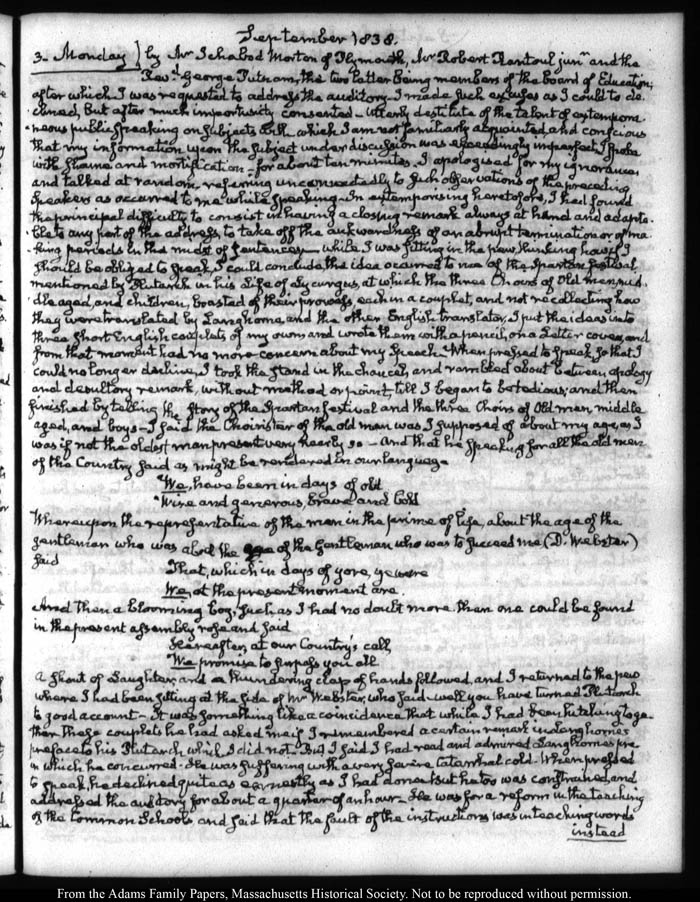 September 1838.
3. Monday} by Mr Ichabod Morton of Plymouth, Mr Robert Rantoul junr and the
Revd George Putnam, the two latter being members of the board of Education;
after which I was requested to address the auditory. I made such excuses as I could to de-
clined, but after much importunity consented – Utterly destitute of the talent of extempora-
neous public speaking on subjects with which I am not familiarly acquainted, and conscious
that my information upon the subject under discussion was exceedingly imperfect, I spoke
with shame and mortification – for about ten minutes. I apologised for my ignorance
and talked at random, referring unconnectedly to such observations of the preceding
Speakers as occurred to me while speaking. In extemporising heretofore, I had found
the principal difficulty to consist in having a closing remark always at hand and adapta-
ble to any part of the address, to take off the awkwardness of an abrupt termination or of ma-
king periods in the midst of sentences – while I was sitting in the pew thinking how if I
should be obliged to speak, I could conclude, the idea occurred to me of the Spartan festival
mentioned by Plutarch in his Life of Lycurgus, at which the three Choirs of Old men, mid-
dle aged, and children, boasted of their prowess each in a couplet, and not recollecting how
they were translated by Langhorne and the other English translator, I put the ideas into
three short English couplets of my own and wrote them with a pencil, on a Letter cover, and
from that moment had no more concern about my Speech – When pressed to speak so that I
could no longer decline, I took the stand in the chancel, and rambled about between apology
and desultory remark, without method or point, till I began to be tedious; and then
finished by telling the story of the Spartan festival and the three Choirs of Old men, middle
aged, and boys – I said the Chorister of the old man was I supposed of about my age, as I
was if not the oldest man present very nearly so – And that he speaking for all the old men
of the Country said as might be rendered in our language
We, have been in days of old
Wise and generous, brave and bold
Whereupon the representative of the men in the prime of life, about the age of the
gentleman who was about the age of the Gentleman who was to succeed me (D. Webster)
said
That, which in days of yore, ye were
We, at the present moment are.
And then a blooming boy, such as I had no doubt more than one could be found
in the present assembly rose and said
Hereafter, at our Country's call,
We promise to surpass you all
A shout of Laughter, and a thundering clap of hands followed, and I returned to the pew
where I had been sitting at the side of Mr Webster, who said – well you have turned Plutarch
to good account – It was something like a coincidence that while I had been hitching toge-
ther these couplets he had asked me if I remembered a certain remark in Langhorne's
preface to his Plutarch, which I did not. But I said I had read and admired Langhorne's
in which he concurred. He was suffering with a very severe catarrhal cold. When pressed
to speak, he declined quite as earnestly as I had done but he too was constrained, and
addressed the auditory for about a quarter of an hour – He was for a reform in the teaching
of the Common Schools and said that the fault of the instructions was in teaching words
instead
From the Adams Family Papers, Massachusetts Historical Society. Not to be reproduced without permission.